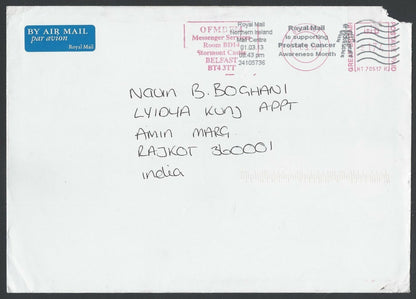 BY AIR MAIL
par avion
Royal Mail
OFMDFM
Messenger Services
Room BD14
Stormont Castle
BELFAST
BT4 3TT
Royal Mail
Northern Ireland
Mail Centre
01.03.13
05:43 pm
24105736
Royal Mail
is supporting
Prostate Cancer
Awareness Month
GREAT
Navin B. BOGHANI
LYIDYA KUNJ APPT
AMIN MARG
RAJKOT 360001
india